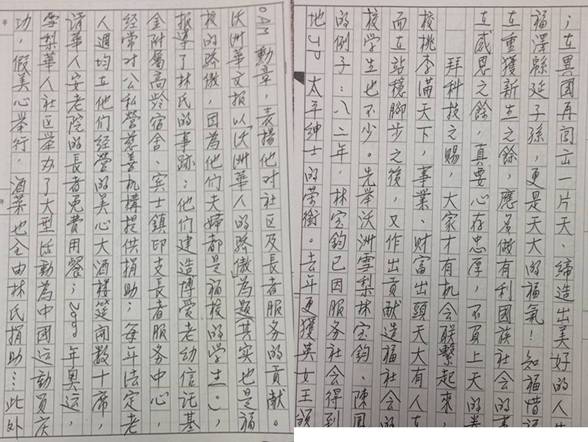 ；在異國再闖出一片天、締造出美好的人
福澤縣延子孫，更是天大的福氣！知福惜
在重獲新生之餘，應多做有利國族社会的
在感恩之餘，真要心存忠厚，不負上天的美
拜科技之賜，大家才有机会联繫起來
校桃李滿天下，事業、財富出頭天大有人
而在站穩腳步之後，又作出貢献造福社会的
校學生也不少。先举沃洲雪梨林定鈞、陳鳳
的例子：八二年，林定鈞已因服务社会得到
地JP太平紳士的荣衡。去年更獲英女王頒
OAM勳章，表揚他对社区及長者服务的貢献。
沃洲華文报以沃洲華人的驕傲為題其实也是福
校的驕傲，因為他们夫婦都是福校的学生：，
报導了林氏的事跡：他们建造博爱老幼信託基
金附属高齡宿舍、宾士鎮印支長者服务中心，
經常对公私營慈善机構提供捐助；每年法定老
人週均在他们經營的美心大酒樓筵開数十席，
請華人安老院的長者免費用餐；2000年奥运，
雪梨華人社区举办了大型活動為中國运動員庆
功，假美心举行，酒菜也全由林氏捐助…此外